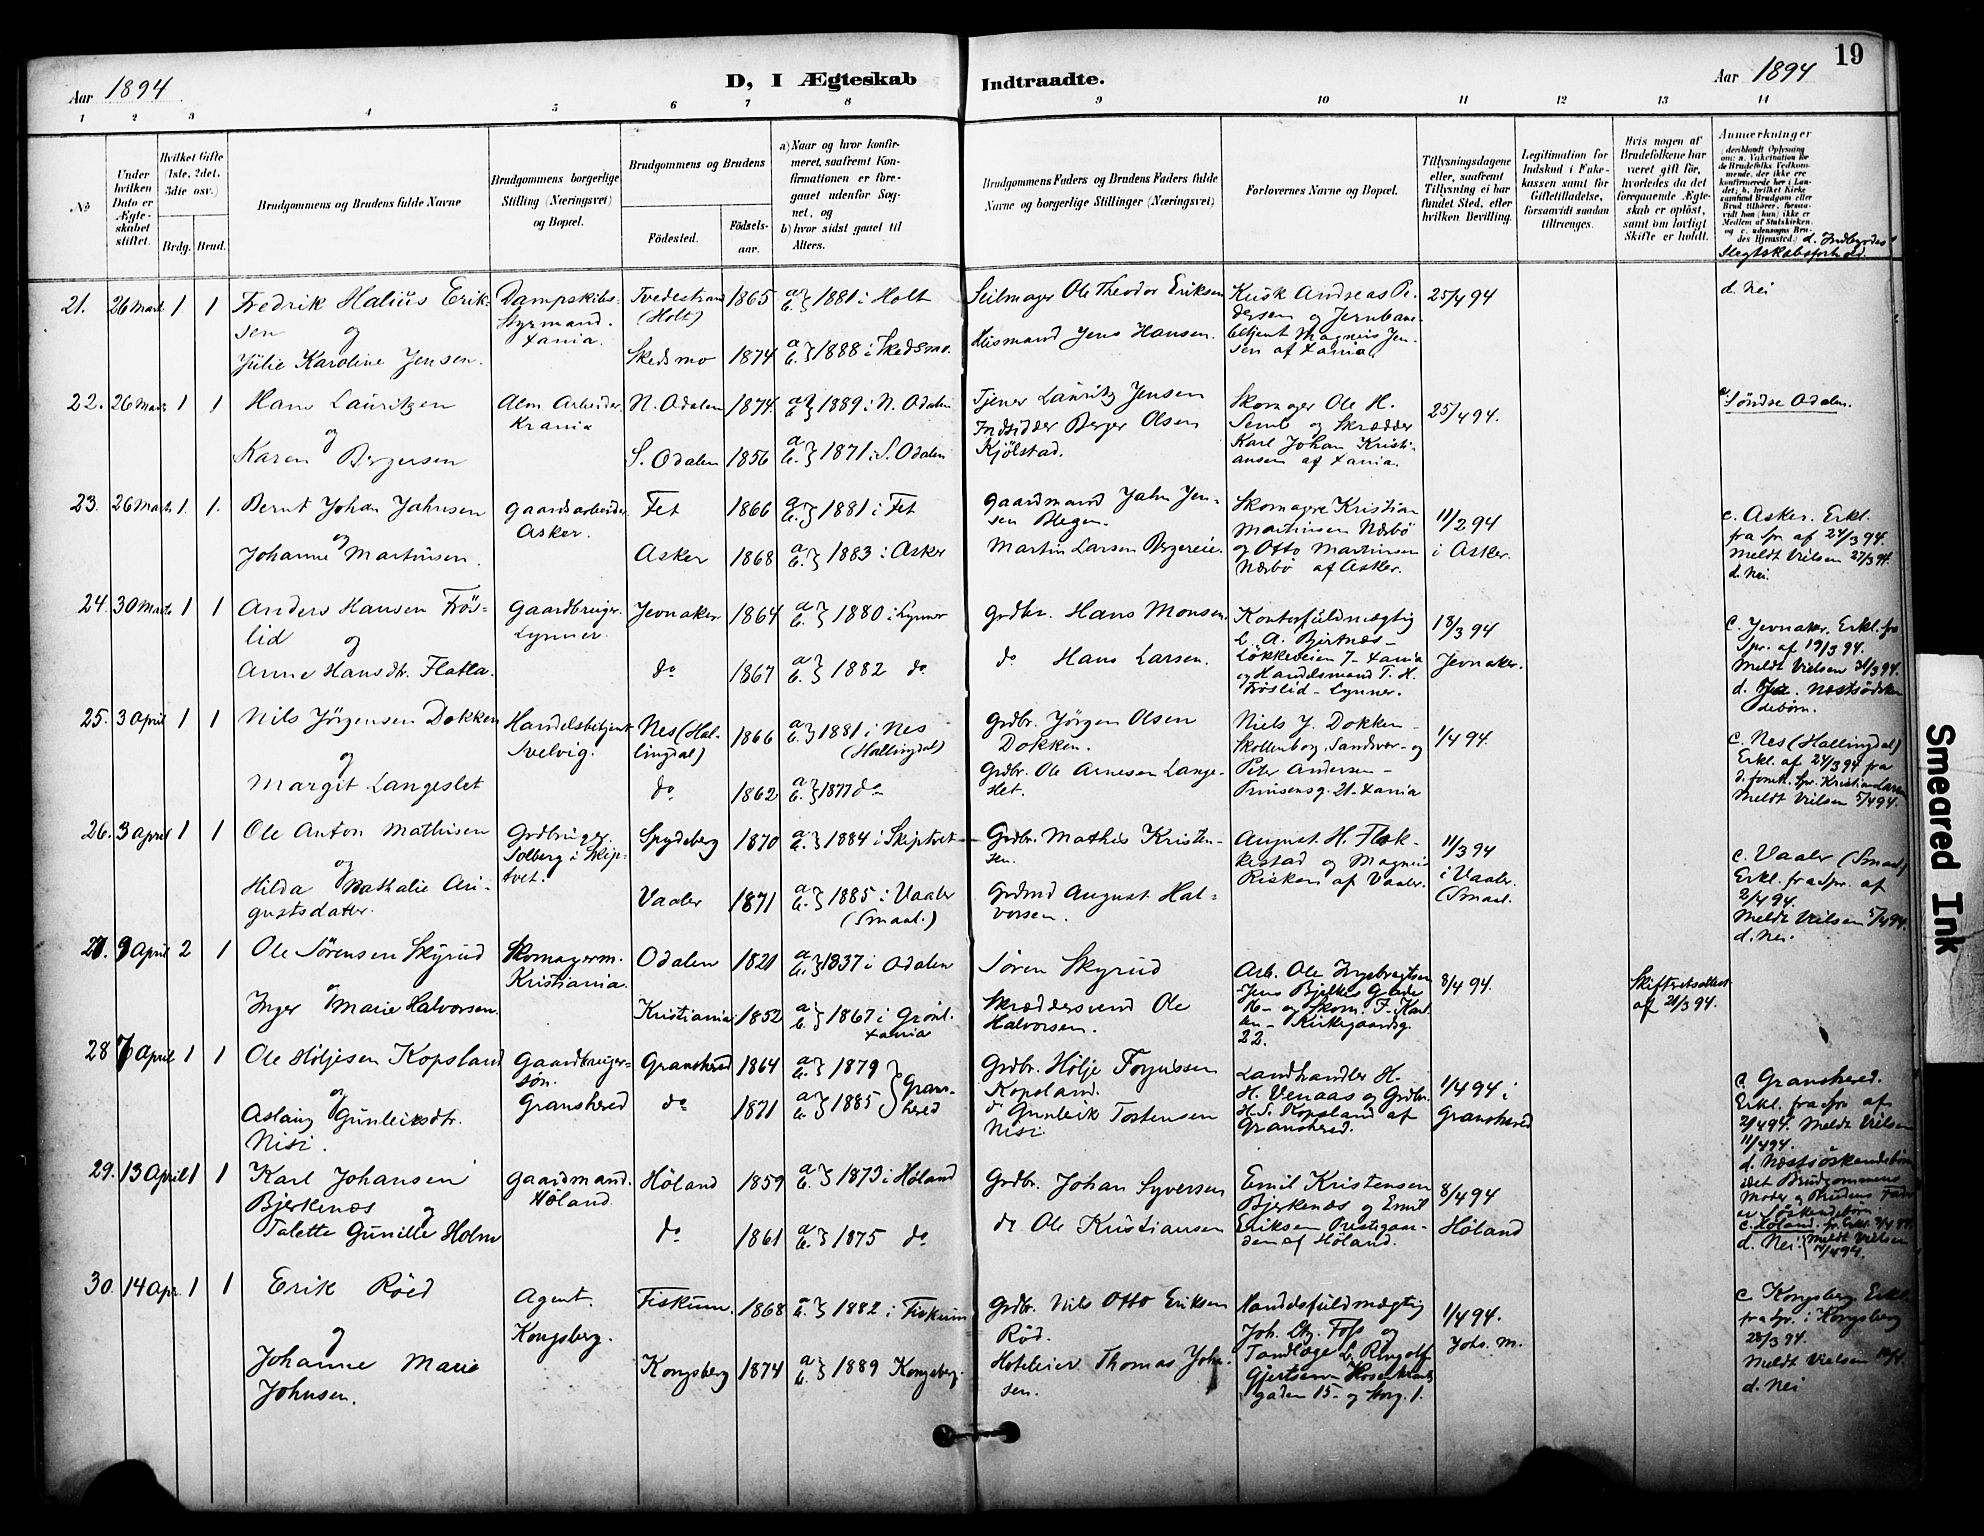 19
Aar 1894
D, I Ægteskab Indtraadte.
Aar 1894
1 2 3 4 5 6 7 8 9 10 11 12 13 14
No
Under hvilken Dato er Ægteskabet stiftet.
Hvilket Gifte (1ste, 2det, 3die osv.)
Brdg. Brud.
Brudgommens og Brudens fulde Navne
Brudgommens borgerlige Stilling (Næringsvei) og Bopæl.
Brudgommens og Brudens
Fødested.
Fødselsaar.
a) Naar og hvor konfirmeret, saafremt Konfirmationen er foregaaet udenfor Sognet, og
b) hvor sidst gaaet til Alters.
Brudgommens Faders og Brudens Faders fulde Navne og borgerlige Stillinger (Næringsvei)
Forlovernes Navne og Bopæl.
Tillysningsdagene eller, saafremt Tillysning ei har fundet Sted, efter hvilken Bevilling.
Legitimation for Indskud i Enkekassen samt for Giftetilladelse, forsaavidt saadan tiltrænges.
Hvis nogen af Brudefolkene har været gift før, hvorledes da det foregaaende Ægteskab er opløst, samt om lovligt Skifte er holdt.
Anmerkninger
d. Indbyrdes Slegtskabsforhold.
21. 26 Marts 1 1 Fredrik Halius Eriksen og Julie Karoline Jensen.
Dampskibsstyrmand. Xania.
Tvedestrand (Holt) 1865 a b } 1881 i Holt
Skedsmo 1874 a b } 1888 i Skedsmo.
Seilmager Ole Theodor Eriksen
Huismand Jens Hansen.
Kusk Andreas Pedersen og Jernbanebetjent Magnus Jensen af Xania.
25/4 94
d. Nei
22. 26 Marts 1 1 Hans Lauritzen og Karen Bergersen
Alm Arbeider Krania
N. Odalen 1874 a b } 1889 i N. Odalen
S. Odalen 1856 a b } 1871 i S. Odalen
Tjener Lauritz Jensen
Indsidder Berger Olsen Kjølstad.
Skomager Ole H. Semb og Skrædder Karl Johan Kristiansen af Xania.
25/4 94.
c. Søndre Odalen.
23. 26 Marts 1. 1. Bernt Johan Jahnsen og Johanne Martinsen.
Gaardsarbeider Asker.
Fet 1866 a b } 1881 i Fet
Asker 1868 a b } 1883 i Asker
Gaardmand Jahn Jensen Hegen.
Martin Larsen Bergereie.
Skomagere Kristian Martinsen Nærbø og Otto Martinsen Nærbø af Asker.
11/2 94 i Asker.
c. Asker. Erkl. fra Spr. af 24/3 94. Meldt Vielsen 27/3 94. d. Nei.
24. 30 Marts 1 1 Anders Hansen Frøslid og Anne Hansdtr. Flatla.
Gaardbruger. Lynner.
Jevnaker 1864 a b } 1880 i Lynner
do 1867 a b } 1882 do
Grdbr. Hans Monsen.
do Hans Larsen.
Kontorfuldmægtig L. A. Bjertnæs - Løkkeveien 7 - Xania og Handelsmand T. H. Frøslid - Lynner.
18/3 94 Jevnaker.
c. Jevnaker. Erkl. fra Spr. af 19/3 94. Meldt Vielsen 31/3 94. d. Ja. Næstsødskendebørn.
25. 3 April 1 1 Nils Jørgensen Dokken og Margit Langeslet
Handelsbetjent Svelvig.
Nes (Hallingdal) 1866 a b } 1881 i Nes (Hallingdal)
do 1862 a b } 1877 do
Grdbr. Jørgen Olsen Dokken.
Grdbr. Ole Arnesen Langeslet.
Niels J. Dokken - Skollenborg, Sandsvær - og Peter Andersen - Prinsensg. 21 - Xania
1/4 94.
c. Nes (Hallingdal) Erkl. af 24/3 94 fra d. Spr. Kristian Larsen Meldt Vielsen 5/4 94.
26. 3 April 1 1 Ole Anton Mathisen og Hilda Nathalie Augustsdatter.
Grdbruger Solberg i Skiptvet.
Spydeberg 1870 a b } 1884 i Skiptvet
Vaaler 1871 a b } 1885 i Vaaler (Smaal.)
Grdbr. Mathis Kristensen.
Grdmd August Halvorsen.
August H. Flækkestad og Magnus Risken af Vaaler.
11/3 94 i Vaaler. (Smaal.
c. Vaaler (Smaal) Erkl. fra Spr. af 2/4 94. Meldt Vielsen 5/4 94. d. Nei.
27. 9 April 2 1 Ole Sørensen Skyrud og Inger Marie Halvorsen.
Skomagerm. Kristiania.
Odalen 1821 a b } 1837 i Odalen
Kristiania 1852 a b } 1867 i Grønl. Xania
Søren Skyrud
Skræddersvend Ole Halvorsen.
Arb. Ole Ingebregtsen Jens Bjelkes Gade og Skom. F. Karlsen - Kirkegaardsg. 22.
8/4 94.
Skifteretsattest af 21/3 94.
28 7 April 1 1 Ole Høljesen Kopsland og Aslaug Gunleiksdtr. Nisi.
Gaardbrugersøn. Gransherred
Gransherred 1864 a b } 1879
do 1871 a b } 1885 } Gransherred
Grdbr. Hølje Kopsland.
do Gunleik Tostensen Nisi.
Landhandler H. H. Venaas og Grdbr. H. S. Kopsland af Gransherred.
1/4 94 i Gransherred
c. Gransherred. Erkl. fra Spr. af 2/4 94. Meldt Vielsen 11/4 94. d. Næstsøskendebørn idet Brudgommens Moder og Brudens Fader er Søskendebørn.
29. 13 April 1 1 Karl Johansen Bjerkenæs og Talette Gunille Holm
Gaardmand. Høland.
Høland 1859 a b } 1873 i Høland
do 1861 a b } 1875 do
Grdbr. Johan Syversen
do Ole Kristiansen
Emil Kristensen Bjerkenæs og Emil Eriksen Prestegaarden af Høland.
8/4 94 Høland
c. Høland. Spr. Erkl. 9/4 94. d. Nei. Meldt Vielsen 14/4 94.
30. 14 Apr. 1 1 Erik Røed og Johanne Marie Johnsen.
Agent. Kongsberg.
Fiskum. 1868 a b } 1882 i Fiskum
Kongsberg 1874 a b } 1889 Kongsberg.
Grdbr. Nils Otto Eriksen Rød.
Hoteleier Thomas Johnsen.
Handelsfuldmægtig Joh. Chr. Foss og Tandlæge L. Ringolf Gjertsen Rosenkrantzgaden 15 - og Korg. 1.
1/4 94. Johs. M.
c. Kongsberg. Erkl. fra Spr. i Kongsberg 28/3 94. Meldt Vielsen. d. Nei
Smeared Ink